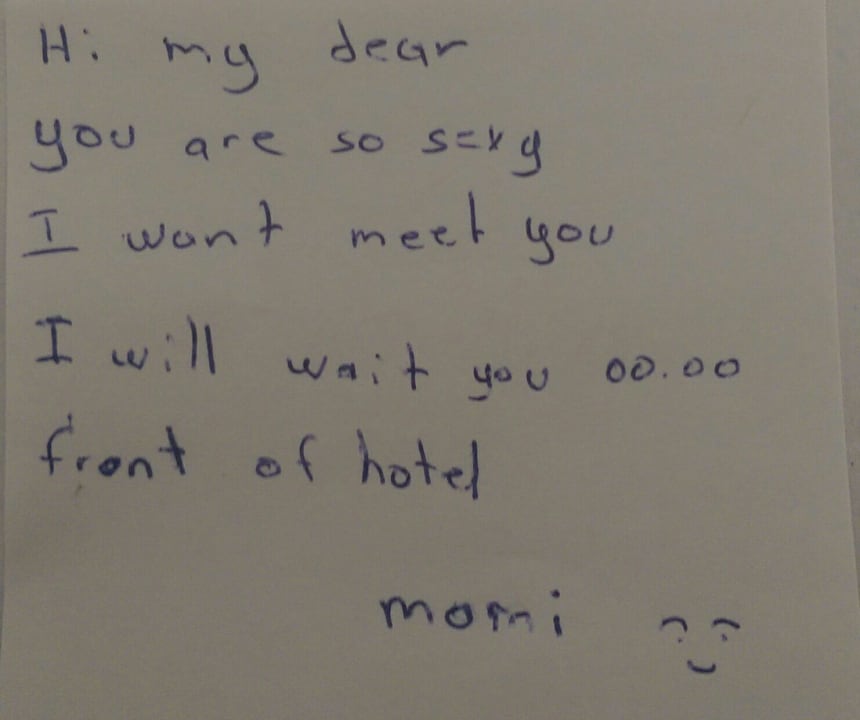 Hi my dear
you are so sexy
I want meet you
I will wait you 00.00
front of hotel
momi